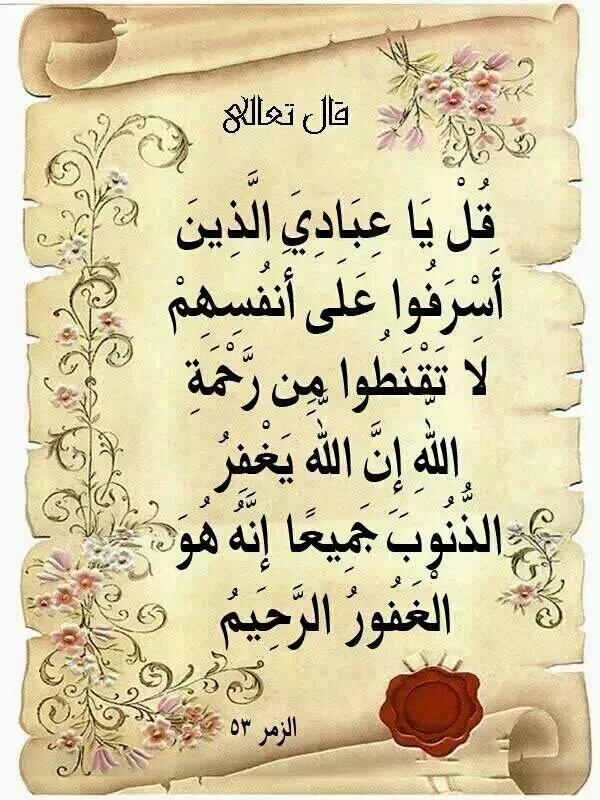 قال تعالى
قُلْ يَا عِبَادِيَ الَّذِينَ
أَسْرَفُوا عَلَى أَنفُسِهِمْ
لَا تَقْنَطُوا مِن رَّحْمَةِ
اللَّهِ إِنَّ اللَّهَ يَغْفِرُ
الذُّنُوبَ جَمِيعًا إِنَّهُ هُوَ
الْغَفُورُ الرَّحِيمُ
الزمر ٥٣